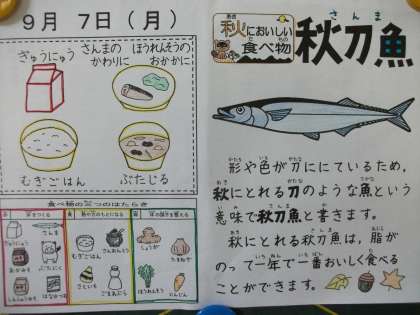 9月 7日(月)
ぎゅうにゅう
さんまの
かわりに
ほうれんそうの
おかかに
むぎごはん
ぶたじる
食べ物の三つのはたらき
さんま
ぶたにく
むぎごはん
さといも
ごまあぶら
しょうが
ほうれんそう
にんじん
秋においしい
食べ物
さんま
秋刀魚
形や色が刀ににているため,
秋にとれる刀のような魚という
意味で秋刀魚と書きます。
秋にとれる秋刀魚は,脂が
のって一年で一番おいしく食べる
ことができます。